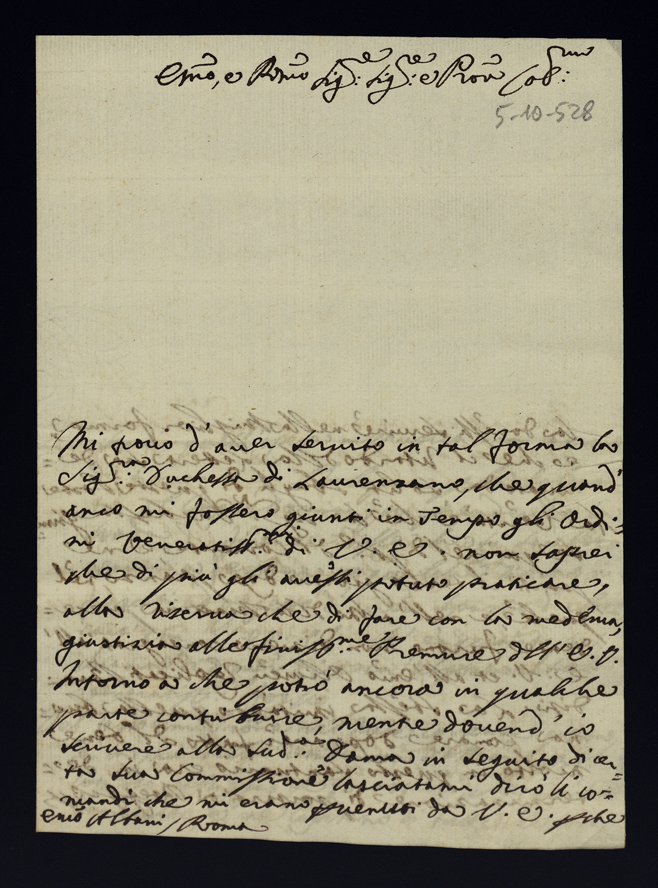 Emo, e Rmo Sig:re Sig:re e Pron Cob:mo
5-10-528
Mi porio d'aver servito in tal forma la
Sig:ra Duchessa di Laurenzano, che quand'
anco mi fossero giunti in Tempo gli Ordi=
ni Veneratiss:mi di V. E. non saprei
che di più gli avessi potuto praticare,
alla riserva che di fare con la medema,
giustizia alle finiss:me Premure dell'E. V.
Intorno a che potrò ancora in qualche
parte contribuire, mentre dovend' io
scrivere alla Sud:a Dama in seguito di cer=
ta sua Commissione lasciatami dirò li co=
mandi che mi erano prevenuti da V. E. pche
Emo Albani / Roma